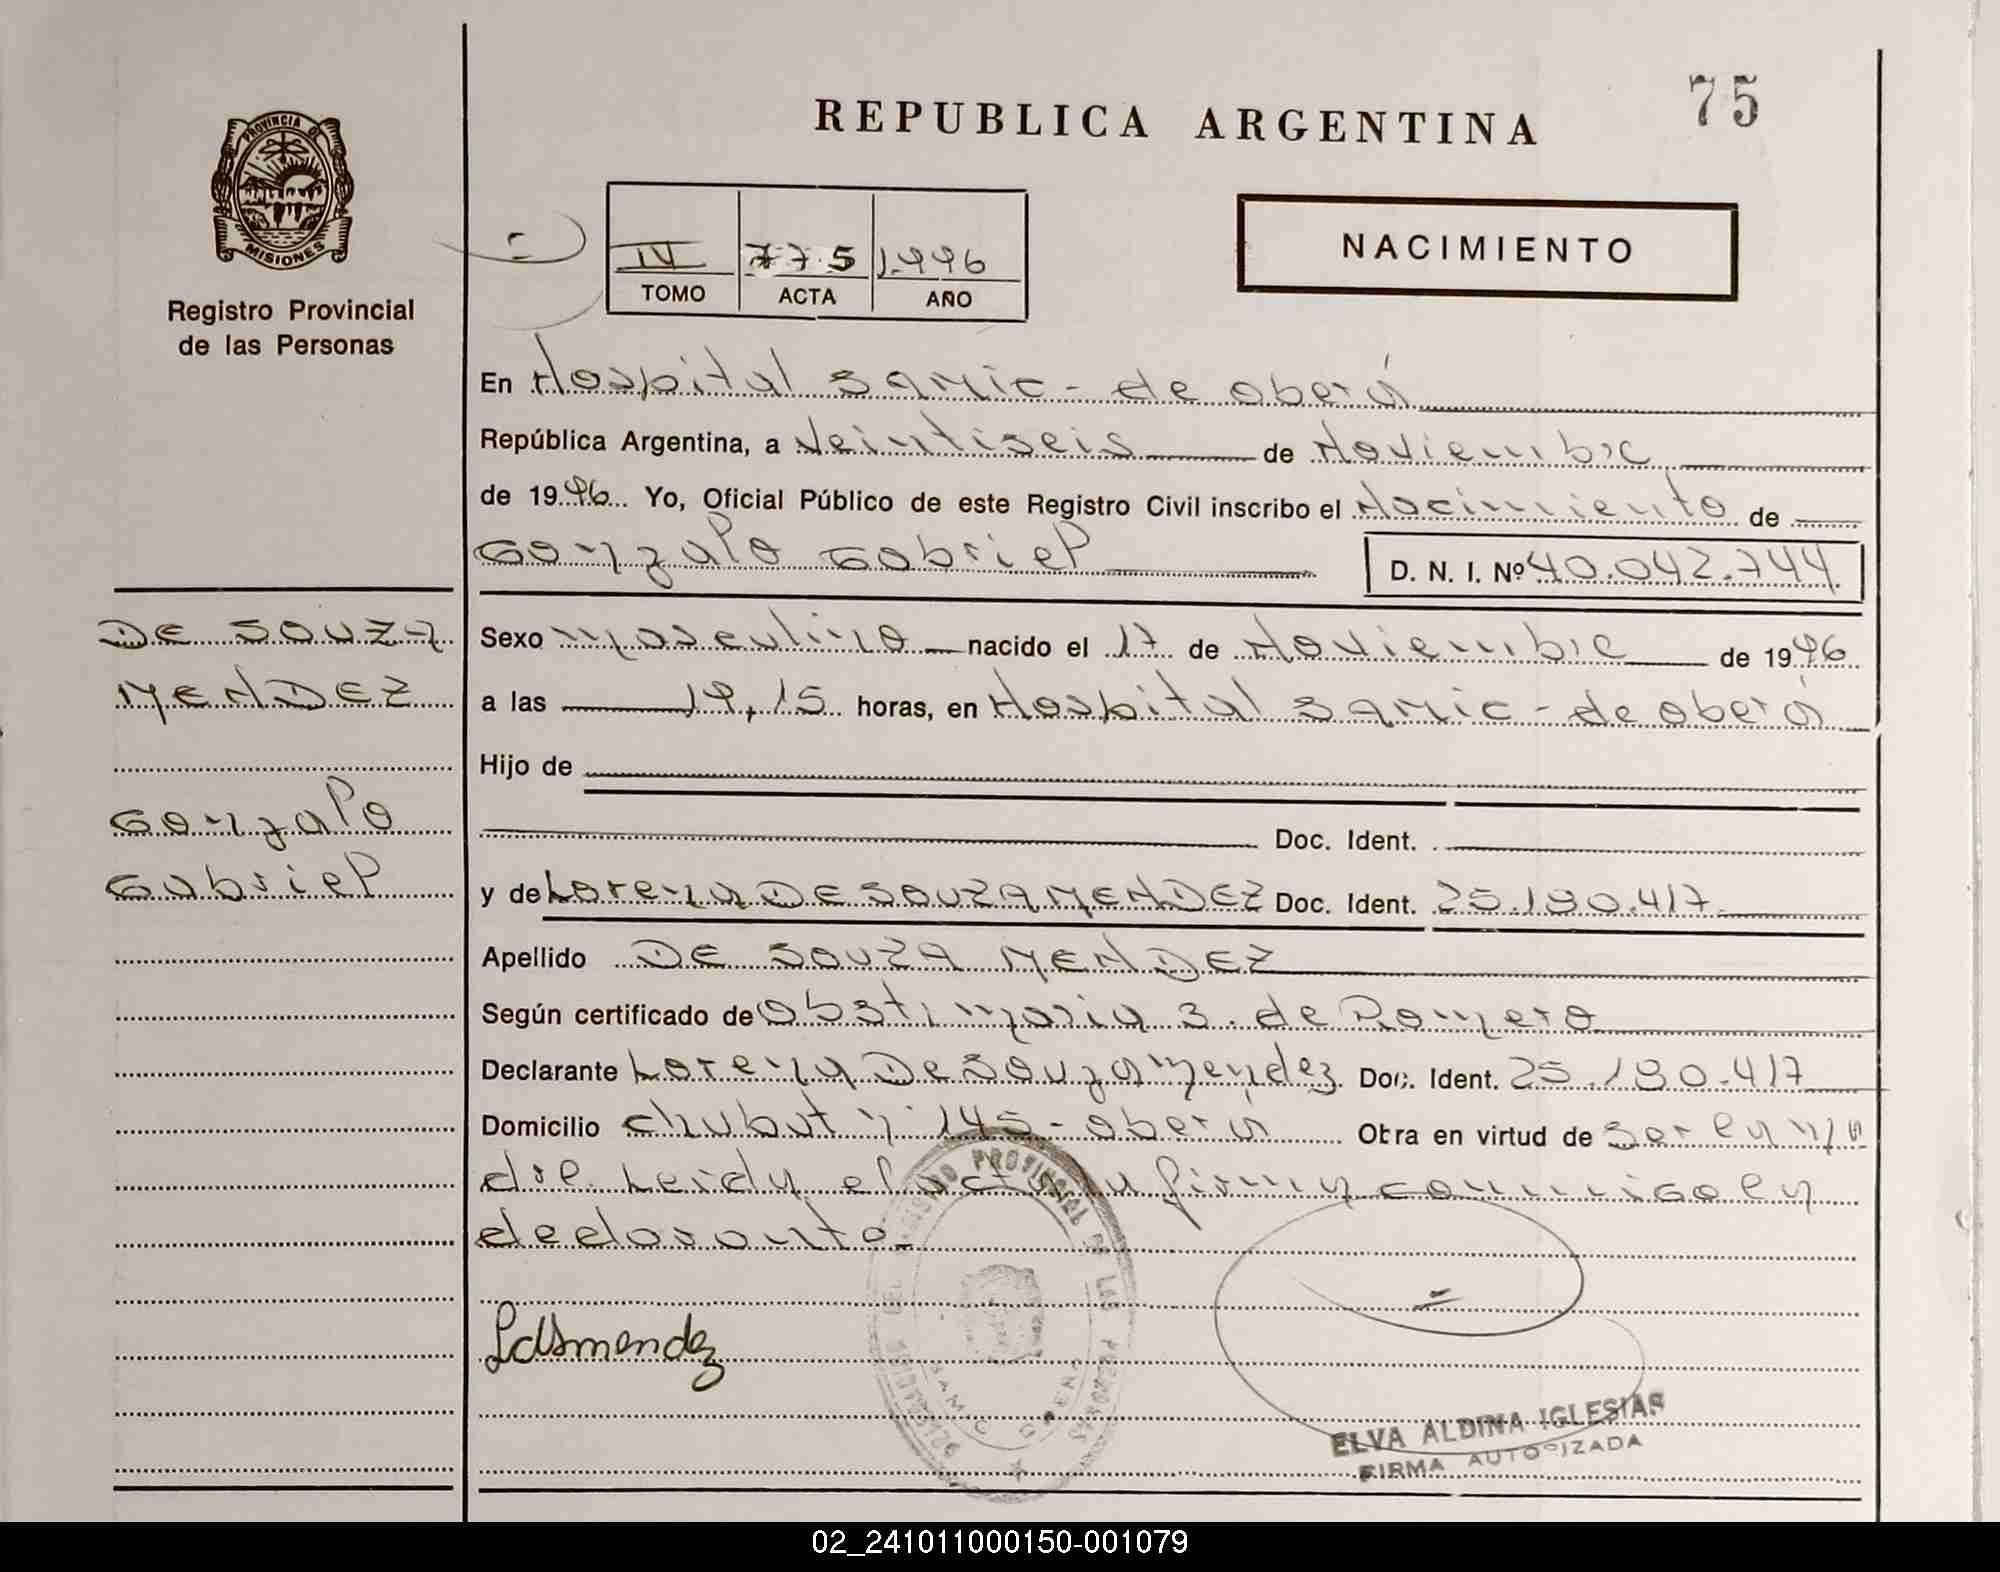 75
REPUBLICA ARGENTINA
PROVINCIA D
MISIONES
Registro Provincial
de las Personas
IV 775 1.996
TOMO ACTA AÑO
NACIMIENTO
En Hospital SAMIC - de oberá
República Argentina, a Veintiseis de Noviembre
de 1996 Yo, Oficial Público de este Registro Civil inscribo el Nacimiento de
Gonzalo Gabriel D. N. I. Nº 40.042.744
DE SOUZA
MENDEZ
Gonzalo
Gabriel
Sexo masculino nacido el 17 de Noviembre de 1996
a las 19,15 horas, en Hospital SAMIC - de oberá
Hijo de
Doc. Ident.
y de Lorena DE SOUZA MENDEZ Doc. Ident. 25.190.417
Apellido DE SOUZA MENDEZ
Según certificado de Obst. maria S. de Romero
Declarante Lorena De Souza Mendez Doc. Ident. 25.190.417
Domicilio chubut n° 145 - oberá Obra en virtud de Ser la m/a
del. Leida el acta la firma conmigo la
declarante.
LdSmendez
REGISTRO PROVINCIAL DE LAS PERSONAS
SAMIC OBERA
ELVA ALDINA IGLESIAS
FIRMA AUTORIZADA
02_241011000150-001079